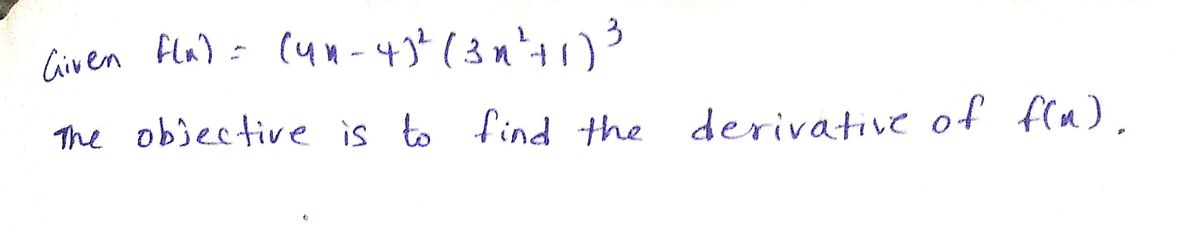 Given f(x) = (4x - 4)² (3x² + 1)³
The objective is to find the derivative of f(x).